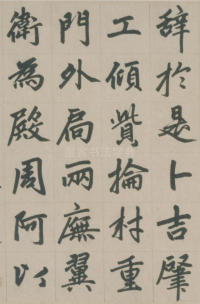 辞於是卜吉肇
工傾貲掄材重
門外局兩廡翼
衛為殿周阿以